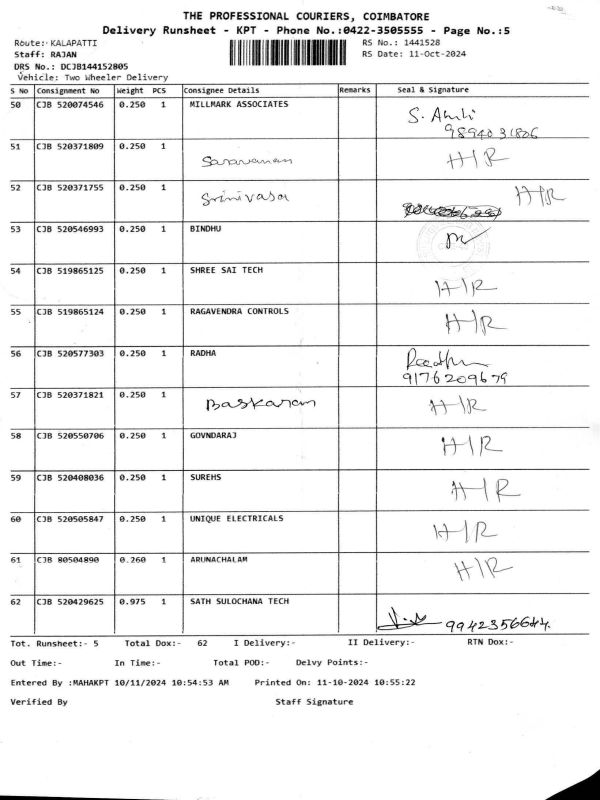 THE PROFESSIONAL COURIERS, COIMBATORE
Delivery Runsheet - KPT - Phone No.:0422-3505555 - Page No.:5
Route:- KALAPATTI RS No.: 1441528
Staff: RAJAN RS Date: 11-Oct-2024
DRS No.: DCJB144152805
Vehicle: Two Wheeler Delivery
S No Consignment No Weight PCS Consignee Details Remarks Seal & Signature
50 CJB 520074546 0.250 1 MILLMARK ASSOCIATES
9894031806
51 CJB 520371809 0.250 1 Saravanan H/R
52 CJB 520371755 0.250 1 Srinivasa H/R
53 CJB 520546993 0.250 1 BINDHU
54 CJB 519865125 0.250 1 SHREE SAI TECH H/R
55 CJB 519865124 0.250 1 RAGAVENDRA CONTROLS H/R
56 CJB 520577303 0.250 1 RADHA
9176209679
57 CJB 520371821 0.250 1 Baskaran H/R
58 CJB 520550706 0.250 1 GOVNDARAJ H/R
59 CJB 520408036 0.250 1 SUREHS H/R
60 CJB 520505847 0.250 1 UNIQUE ELECTRICALS H/R
61 CJB 80504890 0.260 1 ARUNACHALAM H/R
62 CJB 520429625 0.975 1 SATH SULOCHANA TECH 9942356644.
Tot. Runsheet:- 5 Total Dox:- 62 I Delivery:- II Delivery:- RTN Dox:-
Out Time:- In Time:- Total POD:- Delvy Points:-
Entered By :MAHAKPT 10/11/2024 10:54:53 AM Printed On: 11-10-2024 10:55:22
Verified By Staff Signature